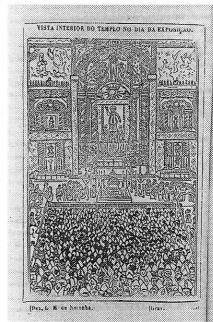 VISTA INTERIOR DO TEMPLO NO DIA DA EXPOSIÇAO.
[Des. L. M. de Noronha.